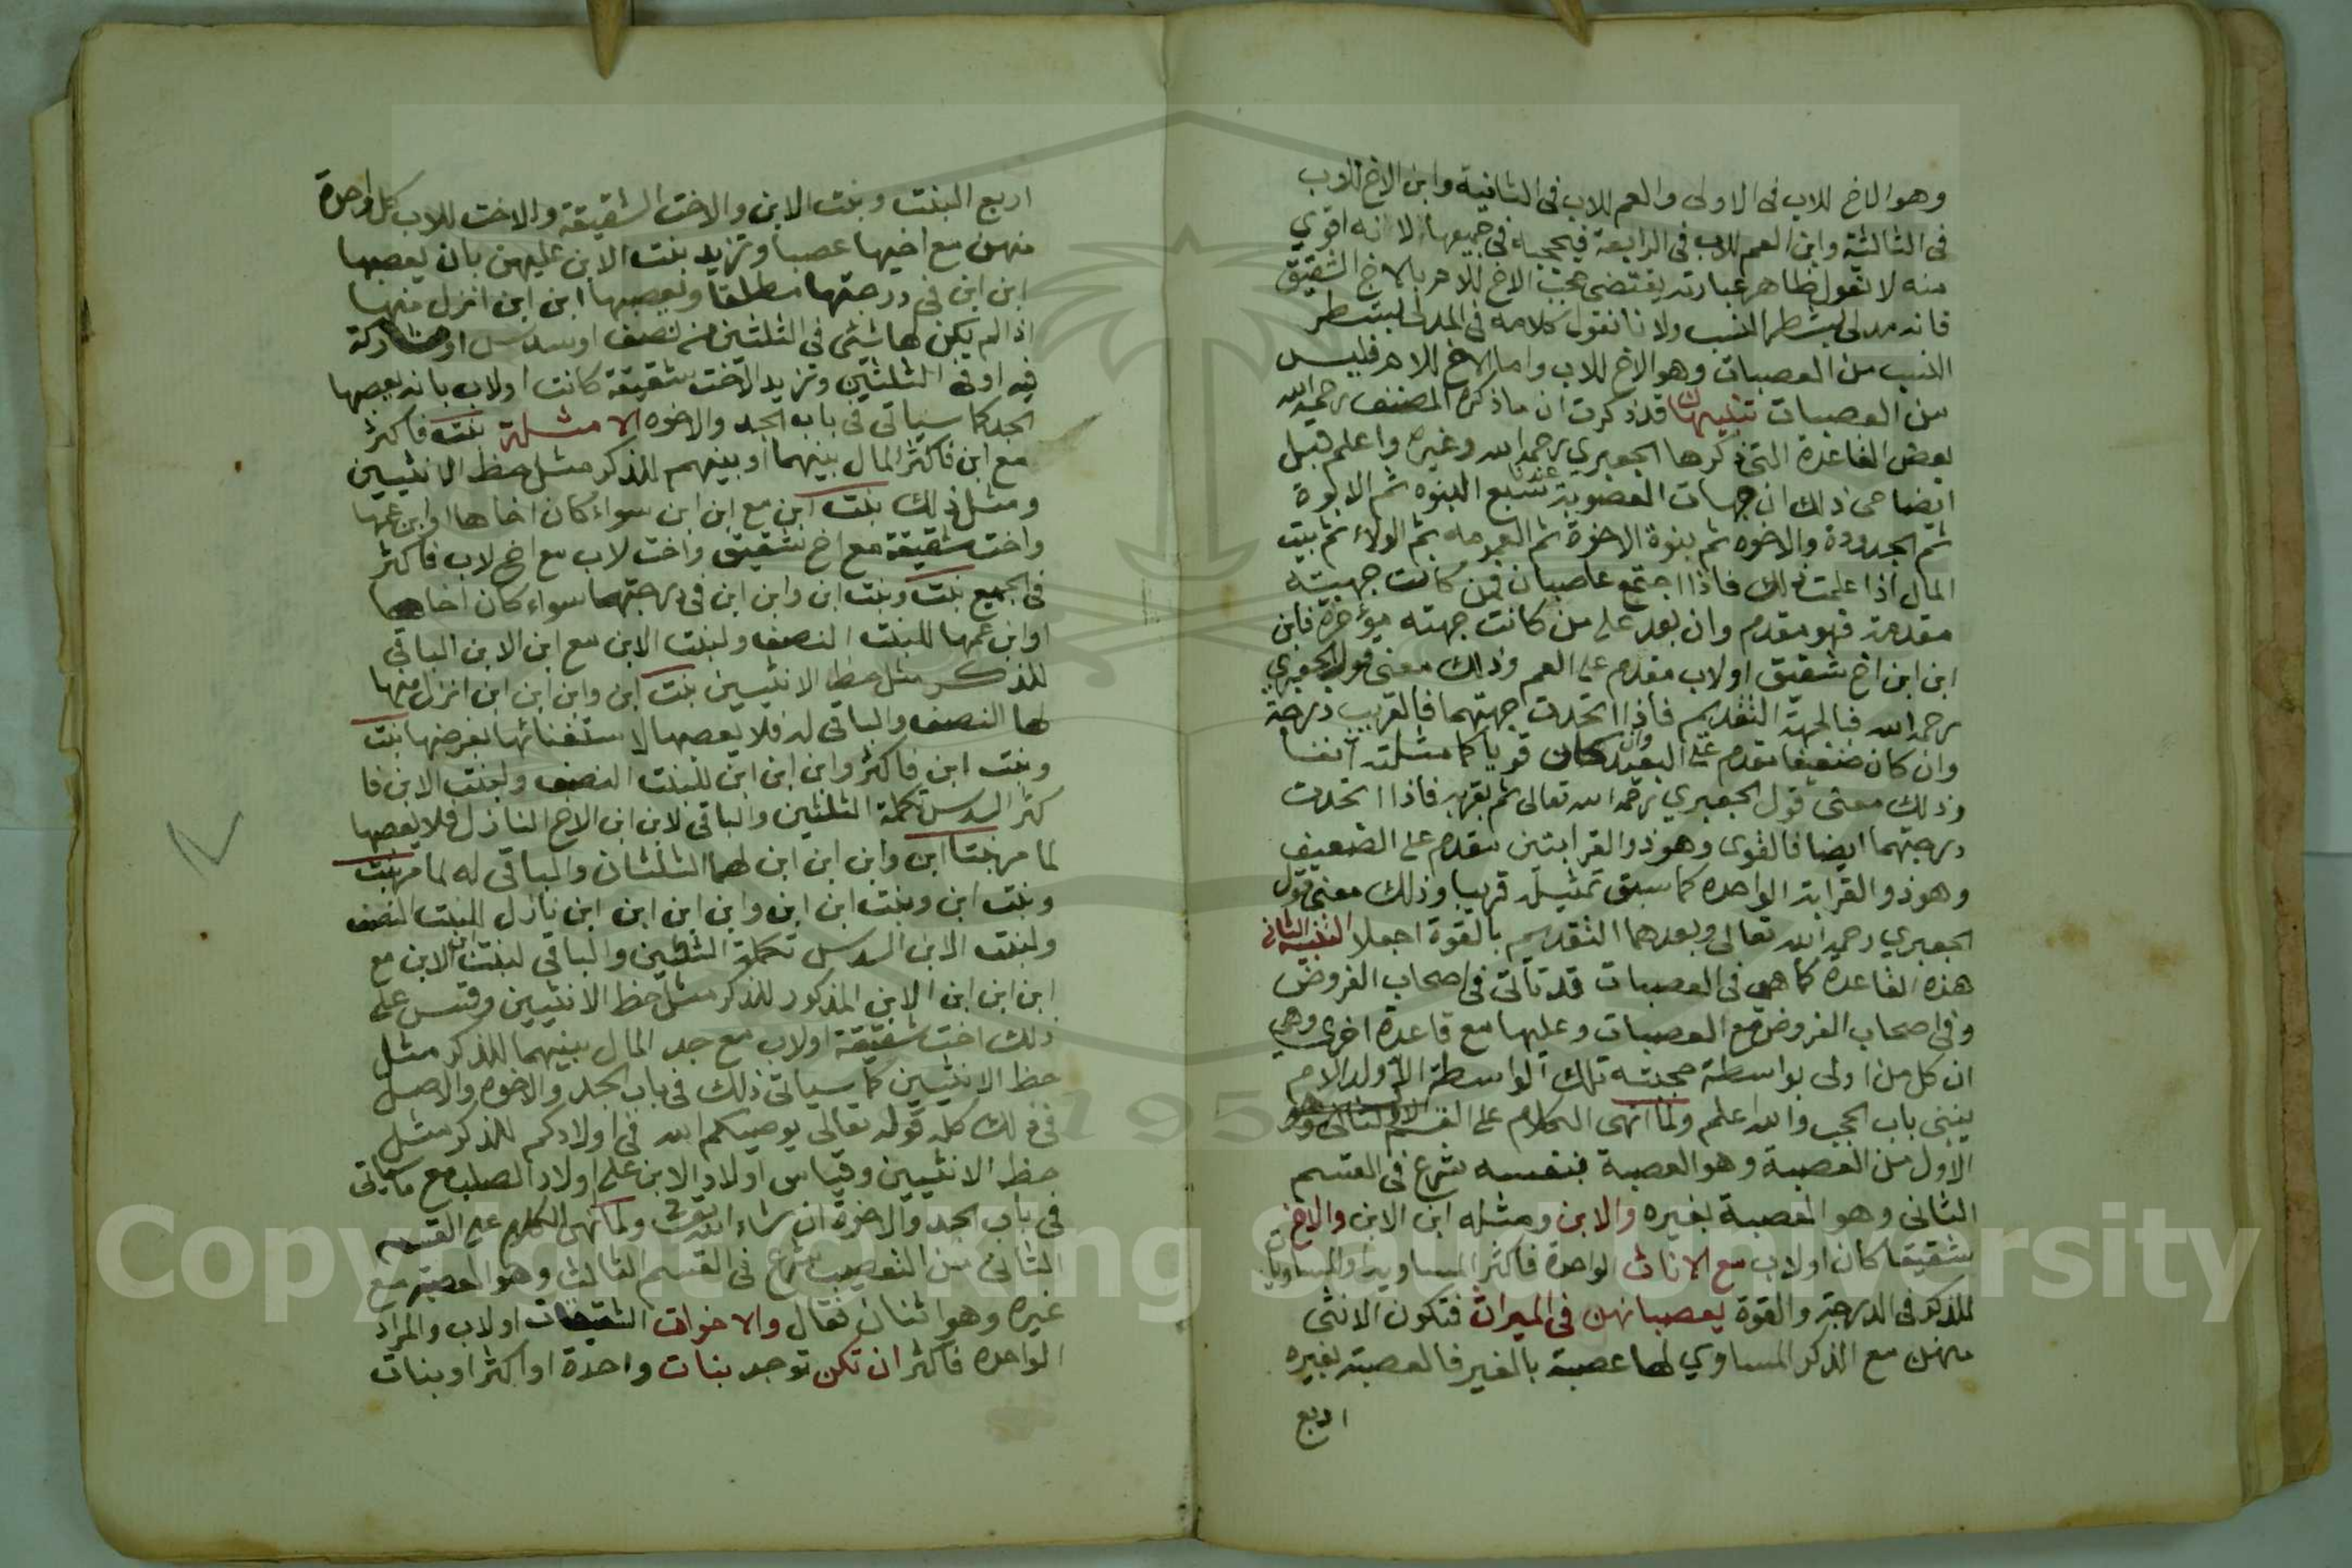 وهو الاخ للاب في الاولى والعم للاب في الثانية وابن الاخ للاب
في الثالثة وابن العم للاب في الرابعة فيحجبه في جميعها لانه اقوي
منه لا نقول ظاهر عبارته يقتضى حجب الاخ للام بالاخ الشقيق
فانه مدلى بشطر النسب ولانا نقول كلامه في المدلى بشطر
النسب من العصبات وهو الاخ للاب واما الاخ للام فليس
من العصبات تنبيهان قد ذكرت ان ما ذكره المصنف رحمه الله
بعض القاعدة التى ذكرها الجعبري رحمه الله وغيره واعلم قبل
ايضاحى ذلك ان جهات العصوبة عندنا سبع البنوه ثم الابوة
ثم الجدودة والاخوه ثم بنوة الاخوة ثم العمومه ثم الولاء ثم بيت
المال اذا علمت ذلك فاذا اجتمع عاصبان فمن كانت جهيته
مقدمة فهو مقدم وان بعد على من كانت جهته مؤخرة فابن
ابن ابن اخ شقيق او لاب مقدم على العم وذلك معنى قول الجعبري
رحمه الله فبالجهة التقديم فاذا اتحدت جهتهما فالقريب درجة
وان كان ضعيفا مقدم على البعيد وان كان قويا كما مثلته انفا
وذلك معنى قول الجعبري رحمه الله تعالى ثم بقربه فاذا اتحدت
درجتهما ايضا فالقوى وهو ذو القرابتين مقدم على الضعيف
وهو ذو القرابة الواحده كما سبق تمثيله قريبا وذلك معنى قول
الجعبري رحمه الله تعالى وبعدهما التقديم بالقوة اجعلا التنبيه الثانى
هذه القاعدة كما هى في العصبات قد تأتى في اصحاب الفروض
وفي اصحاب الفروض مع العصبات وعليها مع قاعدة اخرى وهى
ان كل من ادلى بواسطة حجبته تلك الواسطة الا ولد الام
ينبنى باب الحجب والله اعلم ولما انهى الكلام على القسم
الاول من العصبة وهو العصبة بنفسه شرع في القسم
الثانى وهو العصبة بغيره والابن ومثله ابن الابن والاخ
شقيقا كان او لاب مع الاناث الواحدة فاكثر المساويه او المساويات
للذكر في الدرجة والقوة يعصبانهن في الميراث فتكون الانثى
منهن مع الذكر المساوي لها عصبة بالغير فالعصبة بغيره
اربع
اربع البنت وبنت الابن والاخت الشقيقة والاخت للاب كل واحدة
منهن مع اخيها عصبا وتزيد بنت الابن عليهن بان يعصبها
ابن ابن في درجتها مطلقا ويعصبها ابن ابن انزل منها
اذا لم يكن لها شئ في الثلثين من نصف او سدس او مشاركة
فيه او في الثلثين وتزيد الاخت شقيقة كانت او لاب بانه يعصبها
الجد كما سياتى في باب الجد والاخوه الامثلة بنت فاكثر
مع ابن فاكثر المال بينهما او بينهم للذكر مثل حظ الانثيين
ومثل ذلك بنت ابن مع ابن ابن سواء كان اخاها او ابن عمها
واخت شقيقة مع اخ شقيق واخت لاب مع اخ لاب فاكثر
في الجميع بنت وبنت ابن وابن ابن في درجتهما سواء كان اخاها
او ابن عمها للبنت النصف ولبنت الابن مع ابن الابن الباقى
للذكر مثل حظ الانثيين بنت ابن وابن ابن ابن انزل منها
لها النصف والباقى له فلا يعصبها لاستغنائها بفرضها بنت
وبنت ابن فاكثر وابن ابن ابن للبنت النصف ولبنت الابن فا
كثر السدس تكملة الثلثين والباقى لابن ابن الاخ النازل فلا يعصبها
لما مر بنتا ابن وابن ابن ابن لهما الثلثان والباقى له لما مر بنت
وبنت ابن وبنت ابن ابن وابن ابن ابن ابن نازل للبنت النصف
ولبنت الابن السدس تكملة الثلثين والباقى لبنت ابن الابن مع
ابن ابن ابن الابن المذكور للذكر مثل حظ الانثيين وقس على
ذلك اخت شقيقة او لاب مع جد المال بينهما للذكر مثل
حظ الانثيين كما سياتى ذلك في باب الجد والاخوه والاصل
في ذلك كله قوله تعالى يوصيكم الله في اولادكم للذكر مثل
حظ الانثيين وقياس اولاد الابن على اولاد الصلب مع ما سياتى
في باب الجد والاخوة ان شاء الله تعالى ولما انهى الكلام على القسم
الثانى من التعصيب شرع في القسم الثالث وهو العصبة مع
غيره وهو اثنان فقال والاخوات الشقيقات او لاب والمراد
الواحده فاكثر ان تكن توجد بنات واحدة او اكثر او بنات